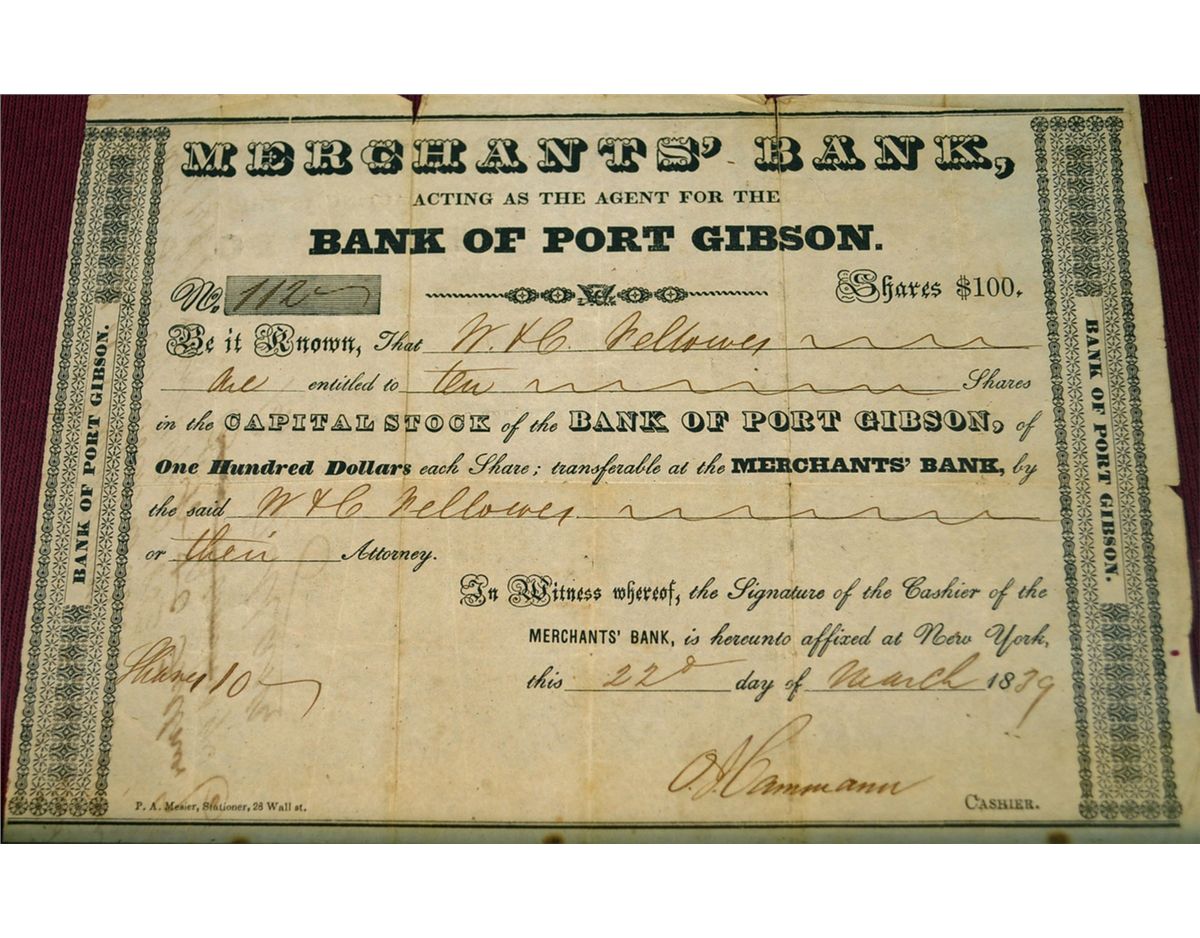 MERCHANTS' BANK,
ACTING AS THE AGENT FOR THE
BANK OF PORT GIBSON.
No. 112 Shares $100.
Be it Known, That W. & C. Fellowes
are entitled to ten Shares
in the CAPITAL STOCK of the BANK OF PORT GIBSON, of
One Hundred Dollars each Share; transferable at the MERCHANTS' BANK, by
the said W & C Fellowes
or their Attorney.
In Witness whereof, the Signature of the Cashier of the
MERCHANTS' BANK, is hereunto affixed at New York,
this 22d day of March 1839
Shares 10
O. J. Cammann
CASHIER.
P. A. Mesier, Stationer, 28 Wall st.
BANK OF PORT GIBSON.
BANK OF PORT GIBSON.